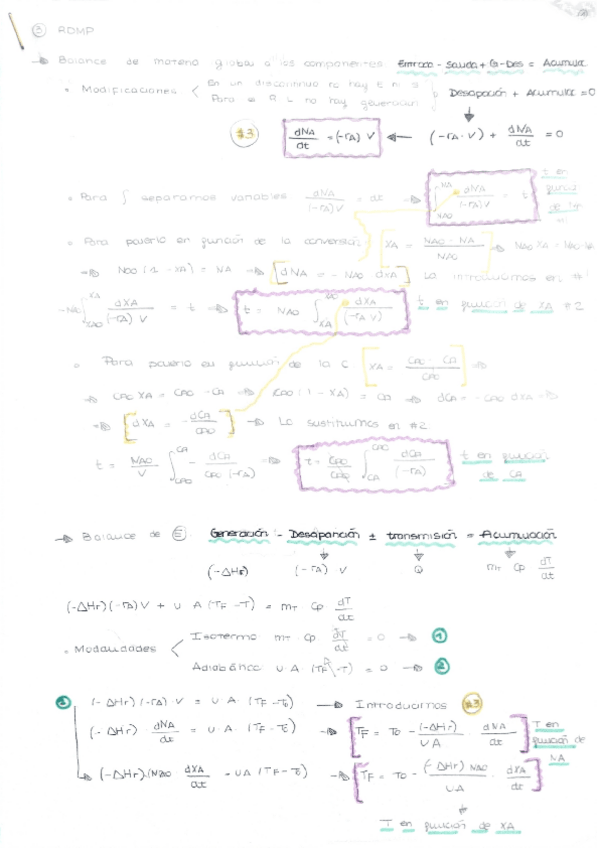 ③ RDMP
→ Balance de materia global a los componentes: Entrada - Salida + G - Des = Acumula
• Modificaciones < En un discontinuo no hay E ni S
Para el R.L no hay generación } Desaparición + Acumula = 0
#3 dNA/dt = (-rA) V ← (-rA · V) + dNA/dt = 0
• Para ∫ separamos variables dNA/(-rA)V = dt → ∫NA0^NA dNA/(-rA)V = t
• Para ponerlo en función de la conversión XA = (NA0 - NA)/NA0
→ NA0 (1 - XA) = NA → [dNA = - NA0 dXA] Lo introducimos en #1
-NA0 ∫XA0^XA dXA/(-rA) V = t → t = NA0 ∫ dXA/(-rA V) t en función de XA #2
• Para ponerlo en función de la C [XA = (CA0 - CA)/CA0] →
→ CA0 XA = CA0 - CA → CA0 (1 - XA) = CA → dCA = - CA0 dXA →
→ [dXA = - dCA/CA0] → Lo sustituimos en #2
t = NA0/V ∫CA0^CA - dCA/CA0 (-rA) → t = CA0/CA0 ∫CA^CA0 dCA/(-rA) t en función
de CA
→ Balance de E: Generación - Desaparición ± transmisión = Acumulación
(-ΔHr) (-rA) V Q mT Cp dT/dt
(-ΔHr)(-rA) V + U A (TF - T) = mT Cp dT/dt
• Modalidades < Isotermo mT Cp dT/dt = 0 → ①
Adiabático U·A (TF - T) = 0 → ②
① (-ΔHr) (-rA) · V = U·A (TF - T0) → Introducimos #3
(-ΔHr) · dNA/dt = U·A (TF - T0) → [TF = T0 - (-ΔHr)/UA · dNA/dt] T en
función de
NA
(-ΔHr)·(NA0 dXA/dt = UA (TF - T0) → [TF = T0 - (-ΔHr) NA0/U.A · dXA/dt]
T en función de XA